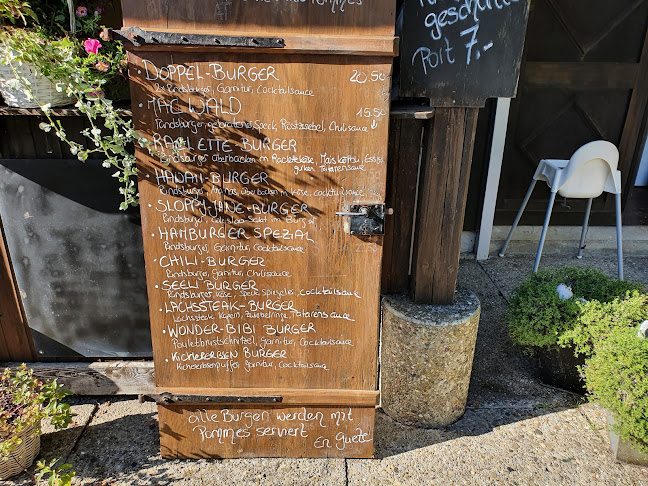 geschürt
Port 7.-
DOPPEL-BURGER 20.50
2x Rindsburger, Garnitur, Cocktailsauce
MAC WALD 15.50
Rindsburger, gebratener Speck, Röstzwiebel, Chilisauce
RACLETTE BURGER
Rindsburger überbacken m. Raclettekäse, Mais, Kartoffel, Essiggurken, Tatarensauce
HAWAII-BURGER
Rindsburger, Ananas, überbacken m. Käse, Cocktailsauce
SLOPPY-JANE-BURGER
Rindsburger, Coleslaw Salat im
HAMBURGER SPEZIAL
Rindsburger, Garnitur, Cocktailsauce
CHILI-BURGER
Rindsburger, Garnitur, Chilisauce
SEELI BURGER
Rindsburger, Käse, Speck, Spiegelei, Cocktailsauce
LACHSSTEAK-BURGER
Lachssteak, Kapern, Zwiebelringe, Tatarensauce
WONDER-BIBI BURGER
Pouletbrustschnitzel, Garnitur, Cocktailsauce
Kichererbsen BURGER
Kichererbsenpuffer, Garnitur, Cocktailsauce
alle Burger werden mit
Pommes serviert En Guete